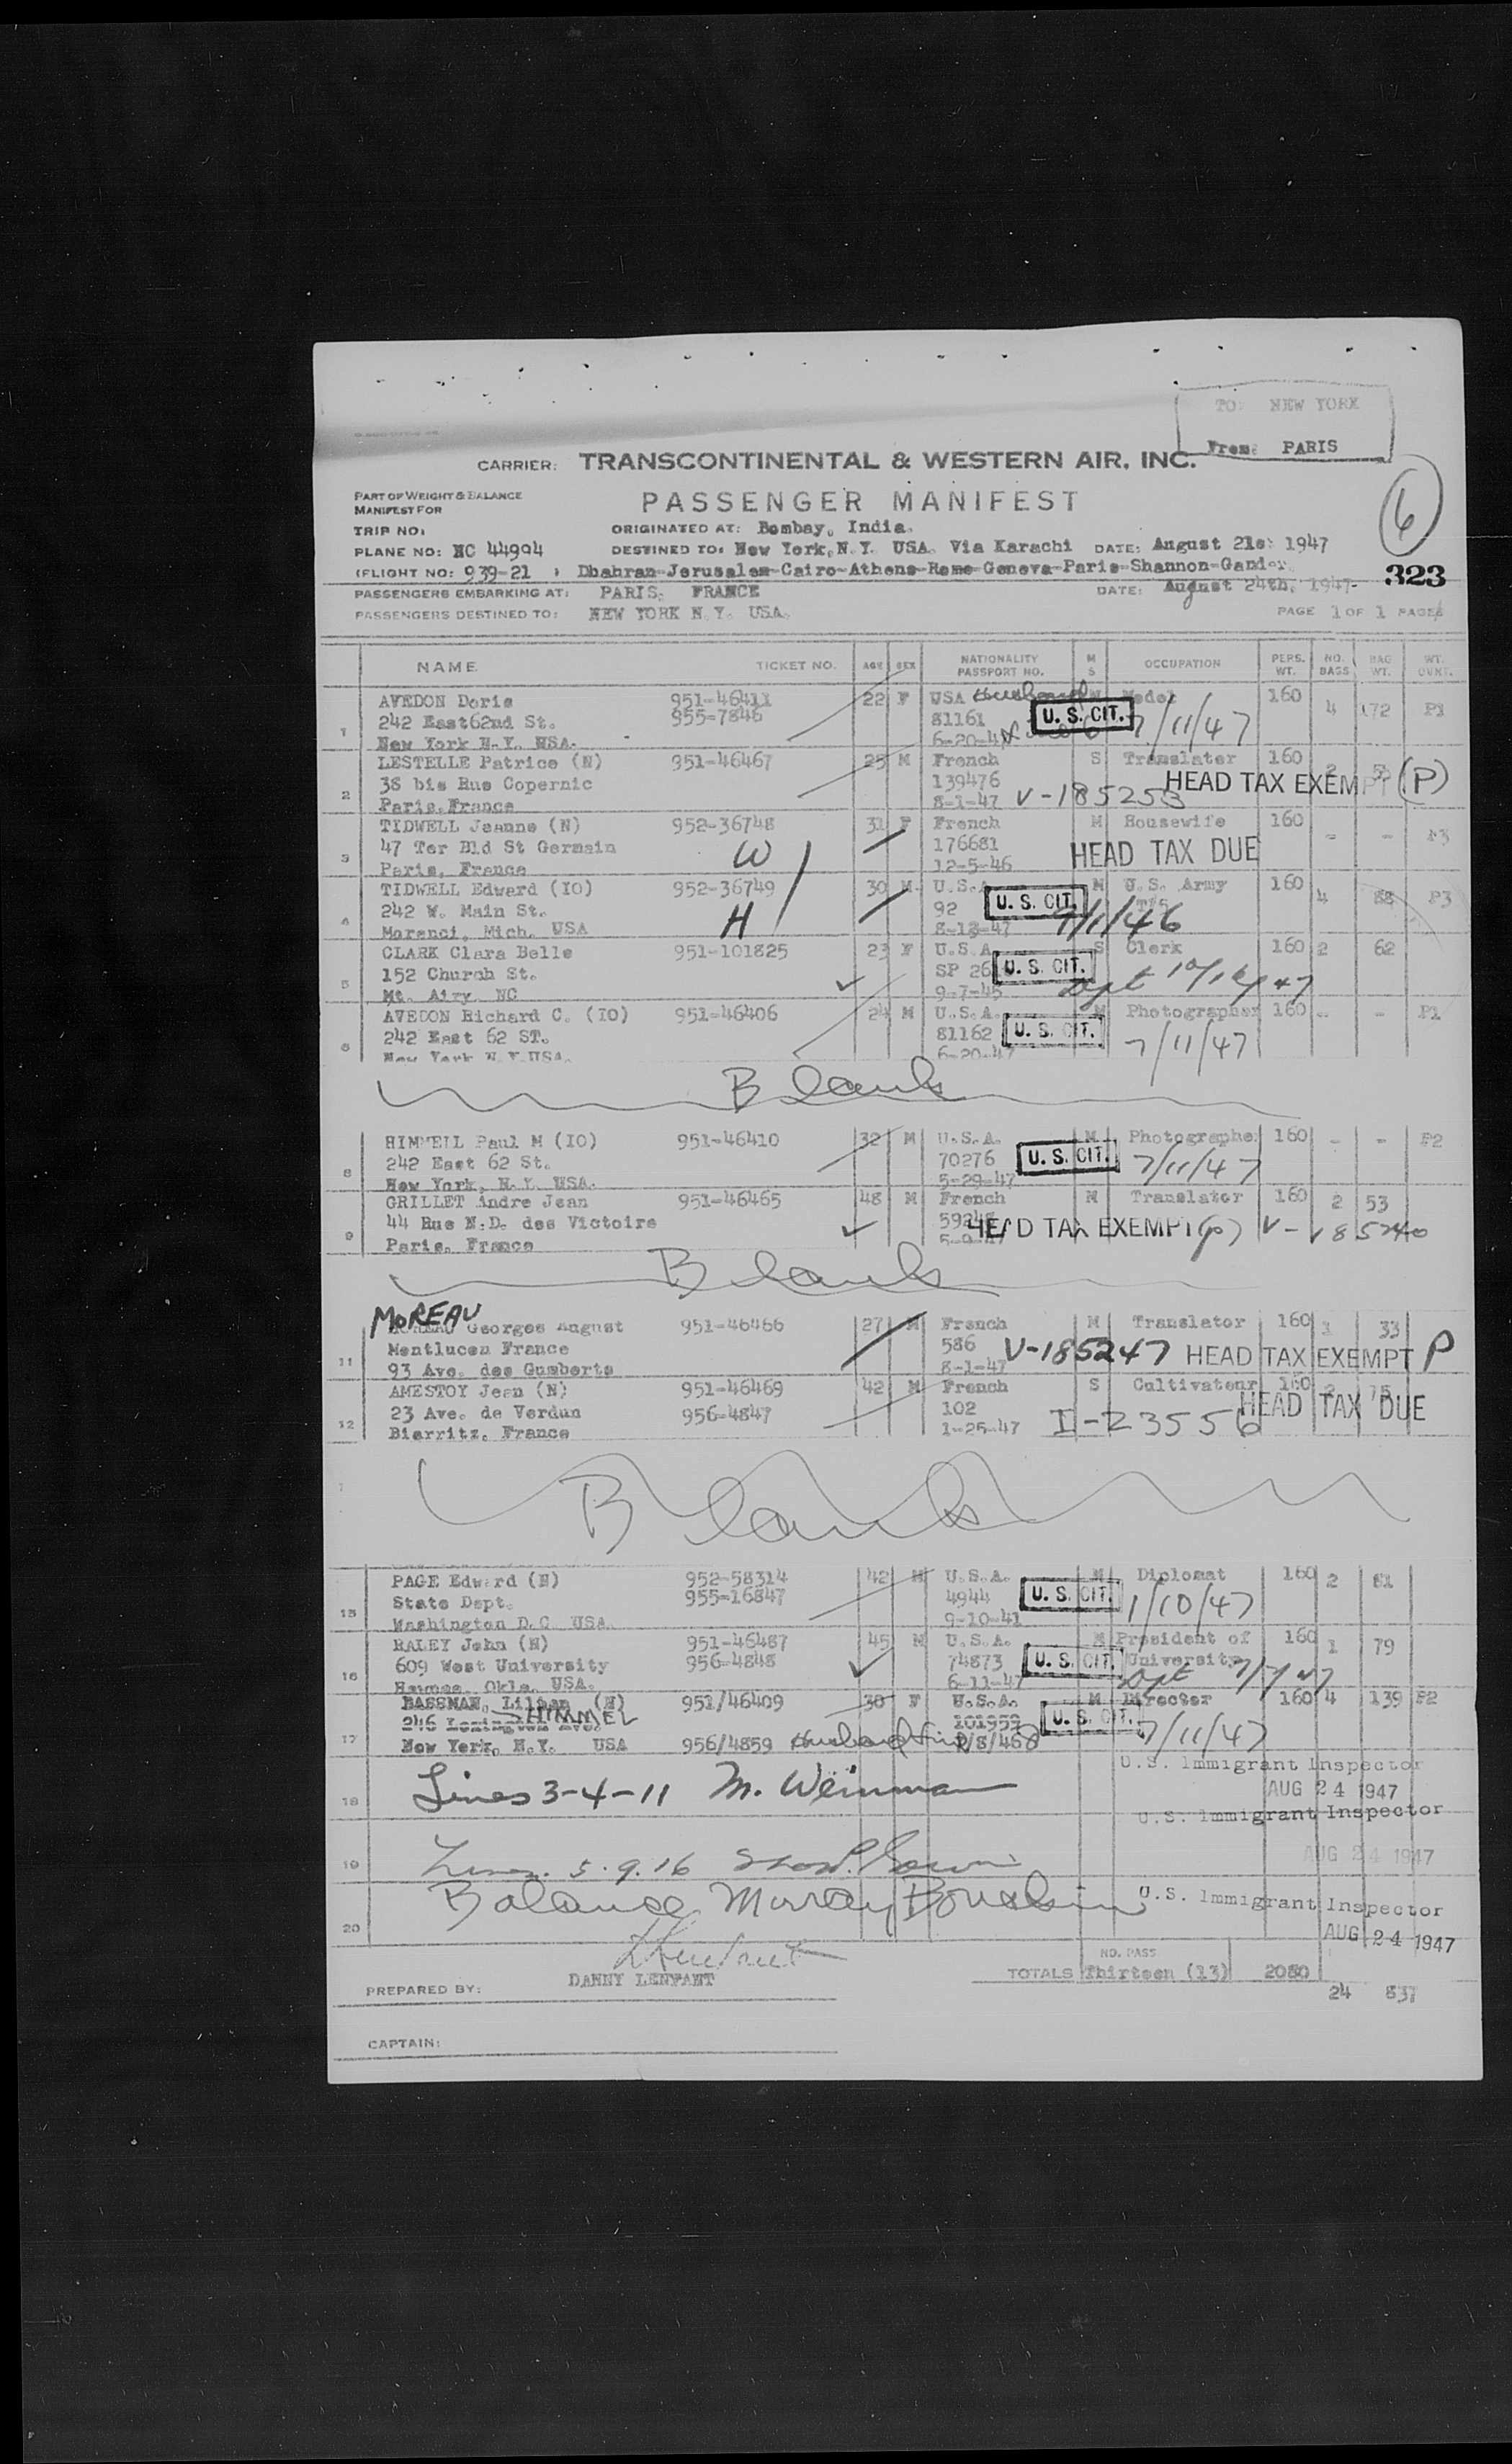 TO: NEW YORK
From: PARIS
CARRIER: TRANSCONTINENTAL & WESTERN AIR, INC.
PART OF WEIGHT & BALANCE
MANIFEST FOR
PASSENGER MANIFEST
6
TRIP NO:
ORIGINATED AT: Bombay, India.
PLANE NO: NC 44904
DESTINED TO: New York, N.Y. USA. Via Karachi DATE: August 21st 1947
(FLIGHT NO: 939-21 ) Dhahran-Jerusalem-Cairo-Athens-Rome-Geneva-Paris-Shannon-Gander
323
PASSENGERS EMBARKING AT: PARIS. FRANCE DATE: August 24th, 1947
PASSENGERS DESTINED TO: NEW YORK N.Y. USA. PAGE 1 OF 1 PAGES
NAME TICKET NO. AGE SEX NATIONALITY PASSPORT NO. M S OCCUPATION PERS. WT. NO. BAGS BAG WT. WT. CONT.
1 AVEDON Doris 951-46411 22 F USA Husband M Model 160 4 172 P1
242 East62nd St. 955-7846 81161 U. S. CIT. 7/11/47
New York N.Y. USA. 6-20-47
2 LESTELLE Patrice (N) 951-46467 25 M French S Translater 160 2
38 bis Rue Copernic 139476 HEAD TAX EXEMPT (P)
Paris, France 8-1-47 V-185253
3 TIDWELL Jeanne (N) 952-36748 31 F French M Housewife 160 - - P3
47 Ter Bld St Germain W 176681 HEAD TAX DUE
Paris, France 12-5-46
4 TIDWELL Edward (IO) 952-36749 30 M U.S.A. M U.S. Army 160 4 88 P3
242 W. Main St. H 92 U. S. CIT. T/5
Morenci, Mich. USA 8-13-47 9/1/46
5 CLARK Clara Belle 951-101825 23 F U.S.A. S Clerk 160 2 62
152 Church St. SP 26 U. S. CIT.
Mt. Airy NC 9-7-45
6 AVEDON Richard C. (IO) 951-46406 24 M U.S.A. M Photographer 160 - - P1
242 East 62 ST. 81162 U. S. CIT. 7/11/47
New York N.Y. USA. 6-20-47
Blank
8 HIMMELL Paul M (IO) 951-46410 32 M U.S.A. M Photographe 160 - - P2
242 East 62 St. 70276 U. S. CIT. 7/11/47
New York, N.Y. USA. 5-29-47
9 GRILLET Andre Jean 951-46465 48 M French M Translator 160 2 53
44 Rue N.D. des Victoire HEAD TAX EXEMPT (P) V-185240
Paris, France
Blank
MOREAU
11 Georges August 951-46466 27 M French M Translator 160 33
Montlucon France 586 V-185247 HEAD TAX EXEMPT P
93 Ave. des Gumberts 8-1-47
12 AMESTOY Jean (N) 951-46469 42 M French S Cultivateur 160
23 Ave. de Verdun 956-4847 102 I-23556 HEAD TAX DUE
Biarritz, France 1-25-47
Blank
15 PAGE Edward (N) 952-58314 42 M U.S.A. M Diplomat 160 2 81
State Dept. 955-16847 4944 U. S. CIT. 1/10/47
Washington D.C USA. 9-10-41
16 RALEY John (N) 951-46487 45 M U.S.A. M President of 160 1 79
609 West University 956-4848 74873 U. S. CIT. University
Okla. USA. 6-11-47
17 BASSMAN, Lilian (N) 951/46409 30 F U.S.A. M Director 160 4 139 P2
246 HIMMEL 101959 U. S. CIT.
New York, N.Y. USA 956/4859 Husband 7/11/47
U.S. Immigrant Inspector
18 Lines 3-4-11 M. Weinman AUG 24 1947
U.S. Immigrant Inspector
19 Lines. 5.9.16 AUG 24 1947
Balance Murray U.S. Immigrant Inspector
20 AUG 24 1947
NO. PASS
PREPARED BY: DANNY LENFANT TOTALS Thirteen (13) 2080
24 837
CAPTAIN: